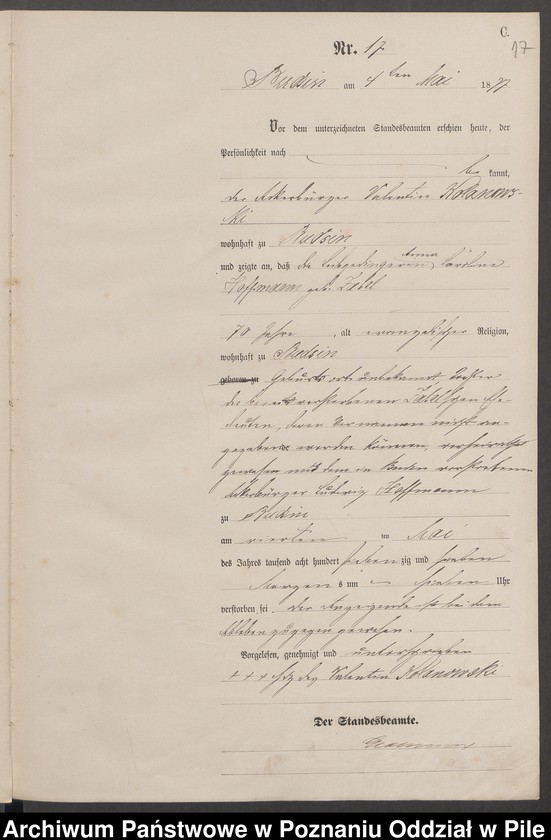 C.
17
Nr. 17
Budsin am 4ten Mai 1877
Vor dem unterzeichneten Standesbeamten erschien heute, der
Persönlichkeit nach
be kannt,
der Ackerbürger Valentin Kolanows-
ki
wohnhaft zu Budsin
und zeigte an, daß die Anna Caroline
Hoffmann geb. Zabel
70 Jahre, alt evangelischer Religion,
wohnhaft zu Budsin
geboren zu Geburtsort unbekannt, Tochter
der verstorbenen Zabelschen Ehe-
leuten, deren Vornamen nicht an-
gegeben werden können, verheirathet
gewesen mit dem in Budsin verstorbenen
Ackerbürger Ludwig Hoffmann
zu Budsin
am vierten ten Mai
des Jahres tausend acht hundert sieben zig und sieben
Morgens um sieben Uhr
verstorben sei. Der Anzeigende ist bei dem
Ableben zugegen gewesen.
Vorgelesen, genehmigt und unterschrieben
+++ Valentin Kolanowski
Der Standesbeamte.
Archiwum Państwowe w Poznaniu Oddział w Pile